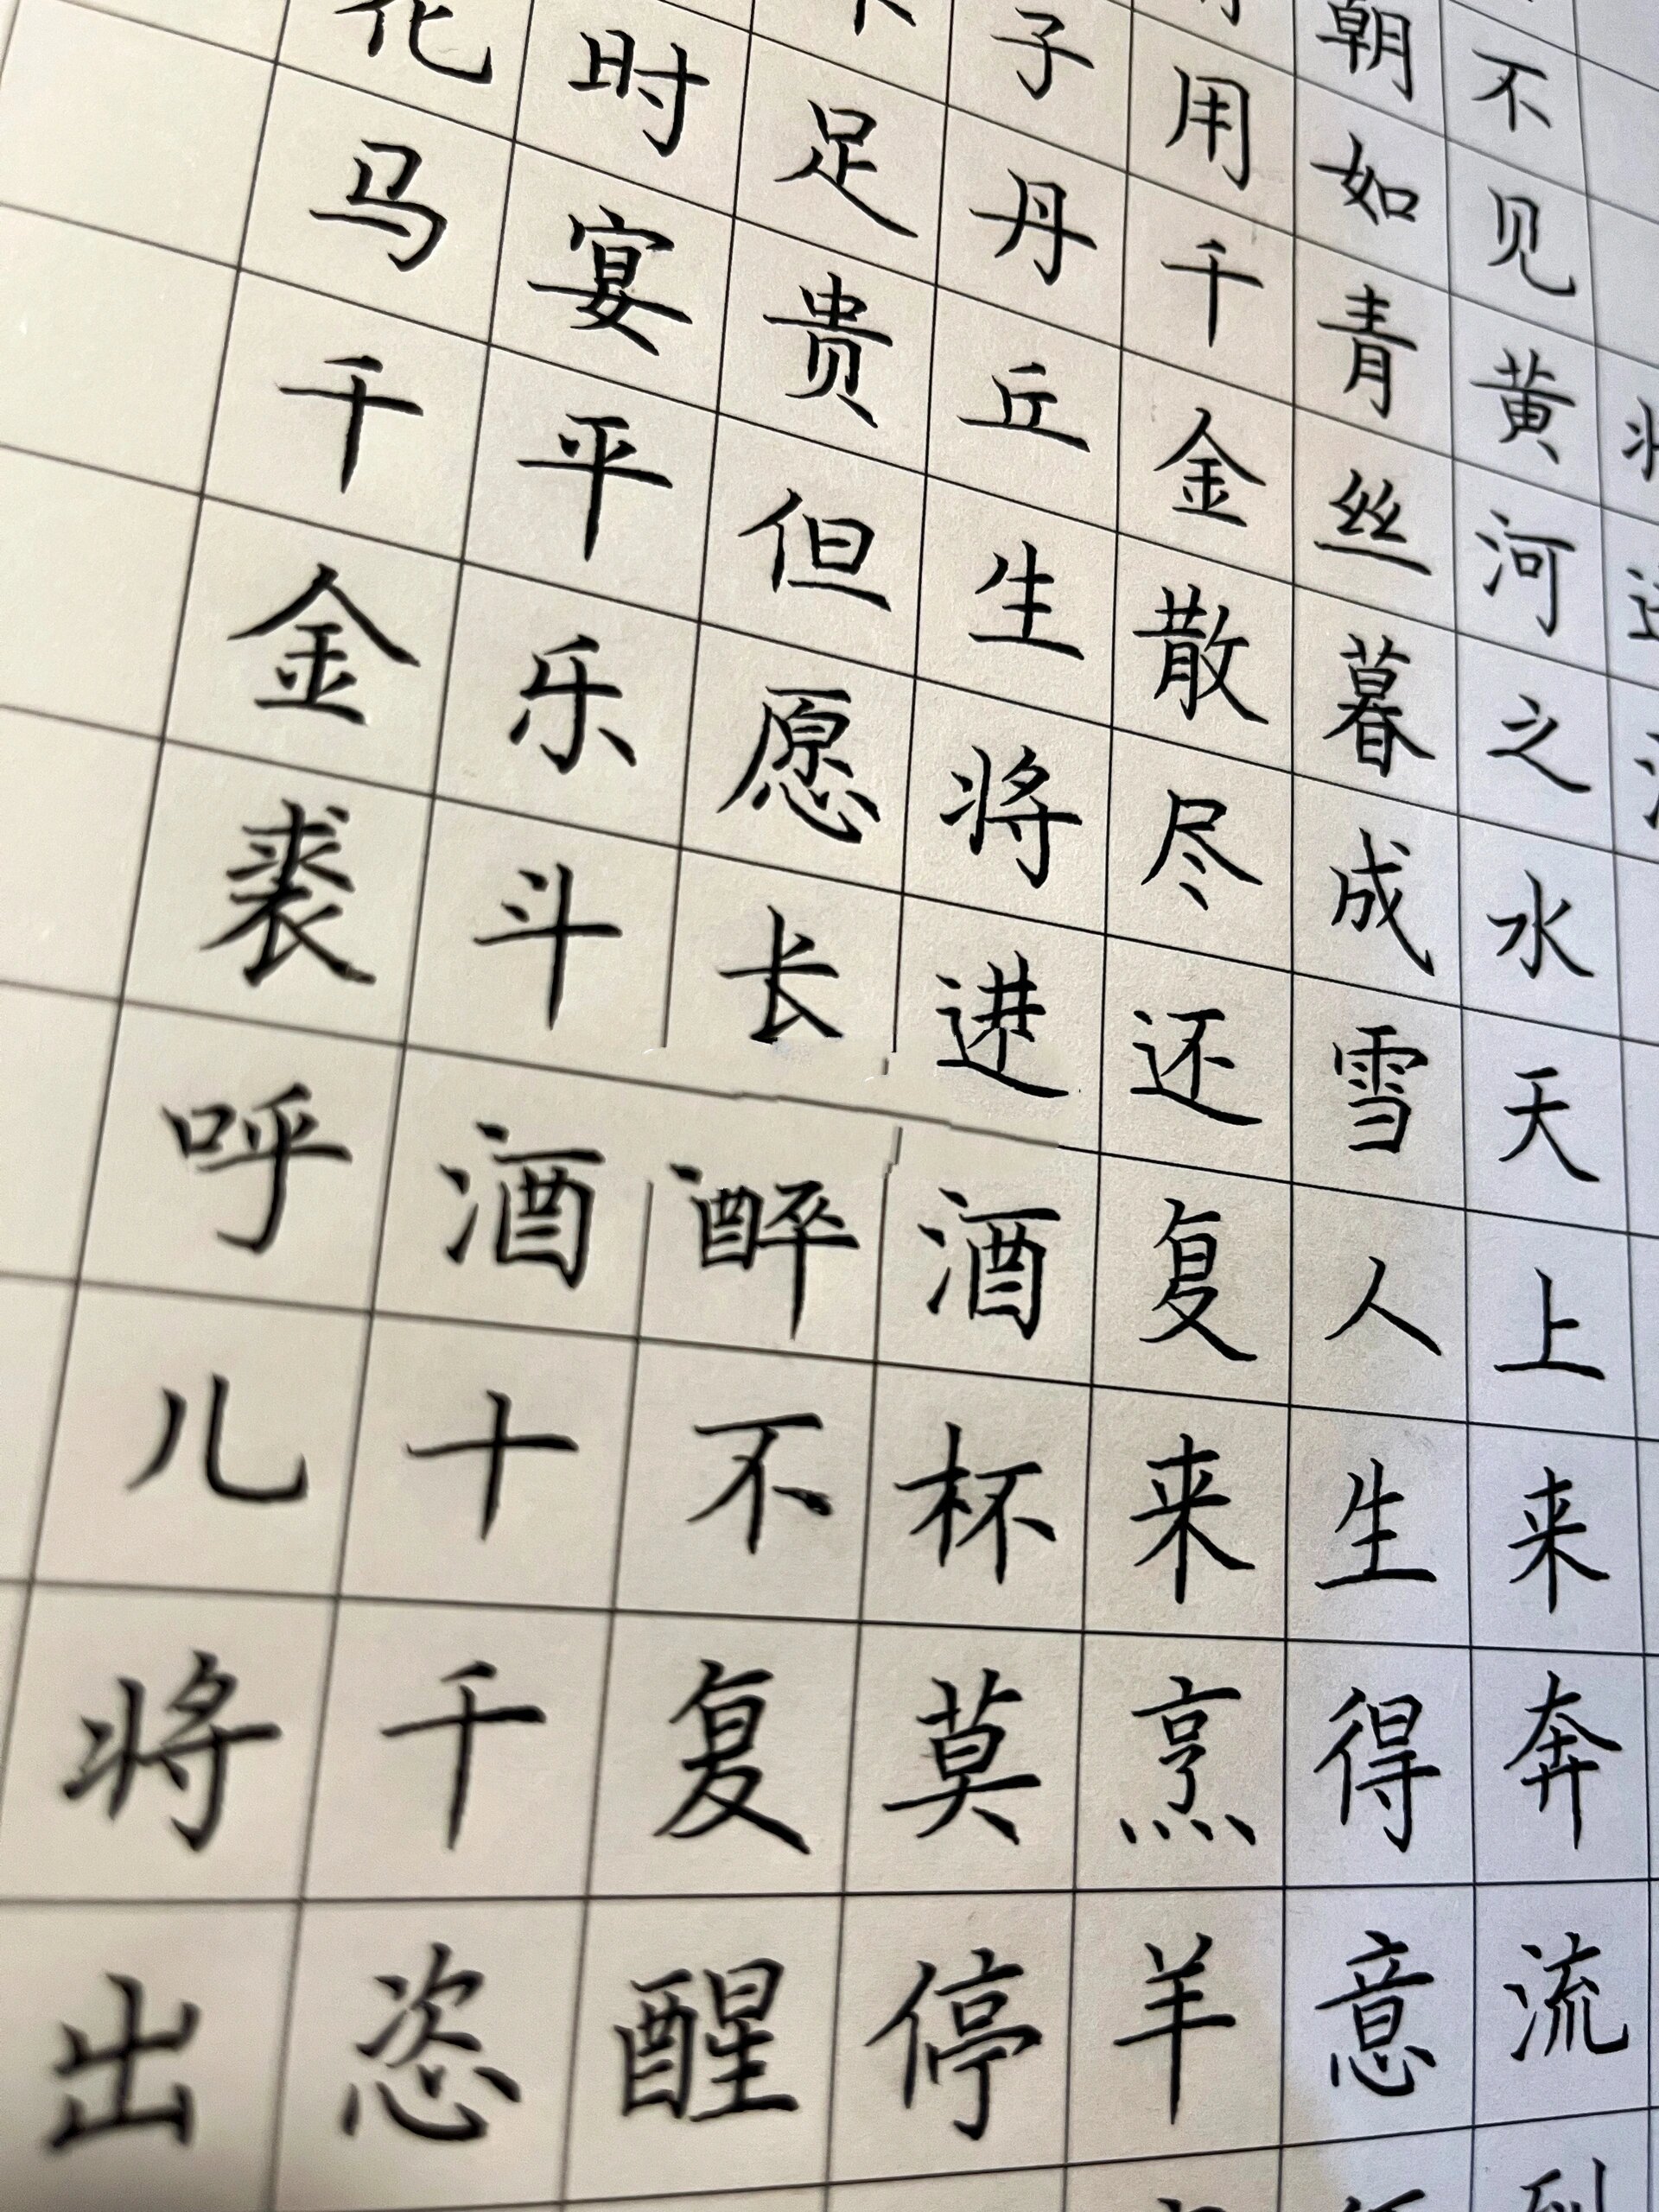 不见黄河之水天上来奔流
朝如青丝暮成雪人生得意
用千金散尽还复来烹羊
子丹丘生将进酒杯莫停
足贵但愿长醉不复醒
时宴平乐斗酒十千恣
马千金裘呼儿将出